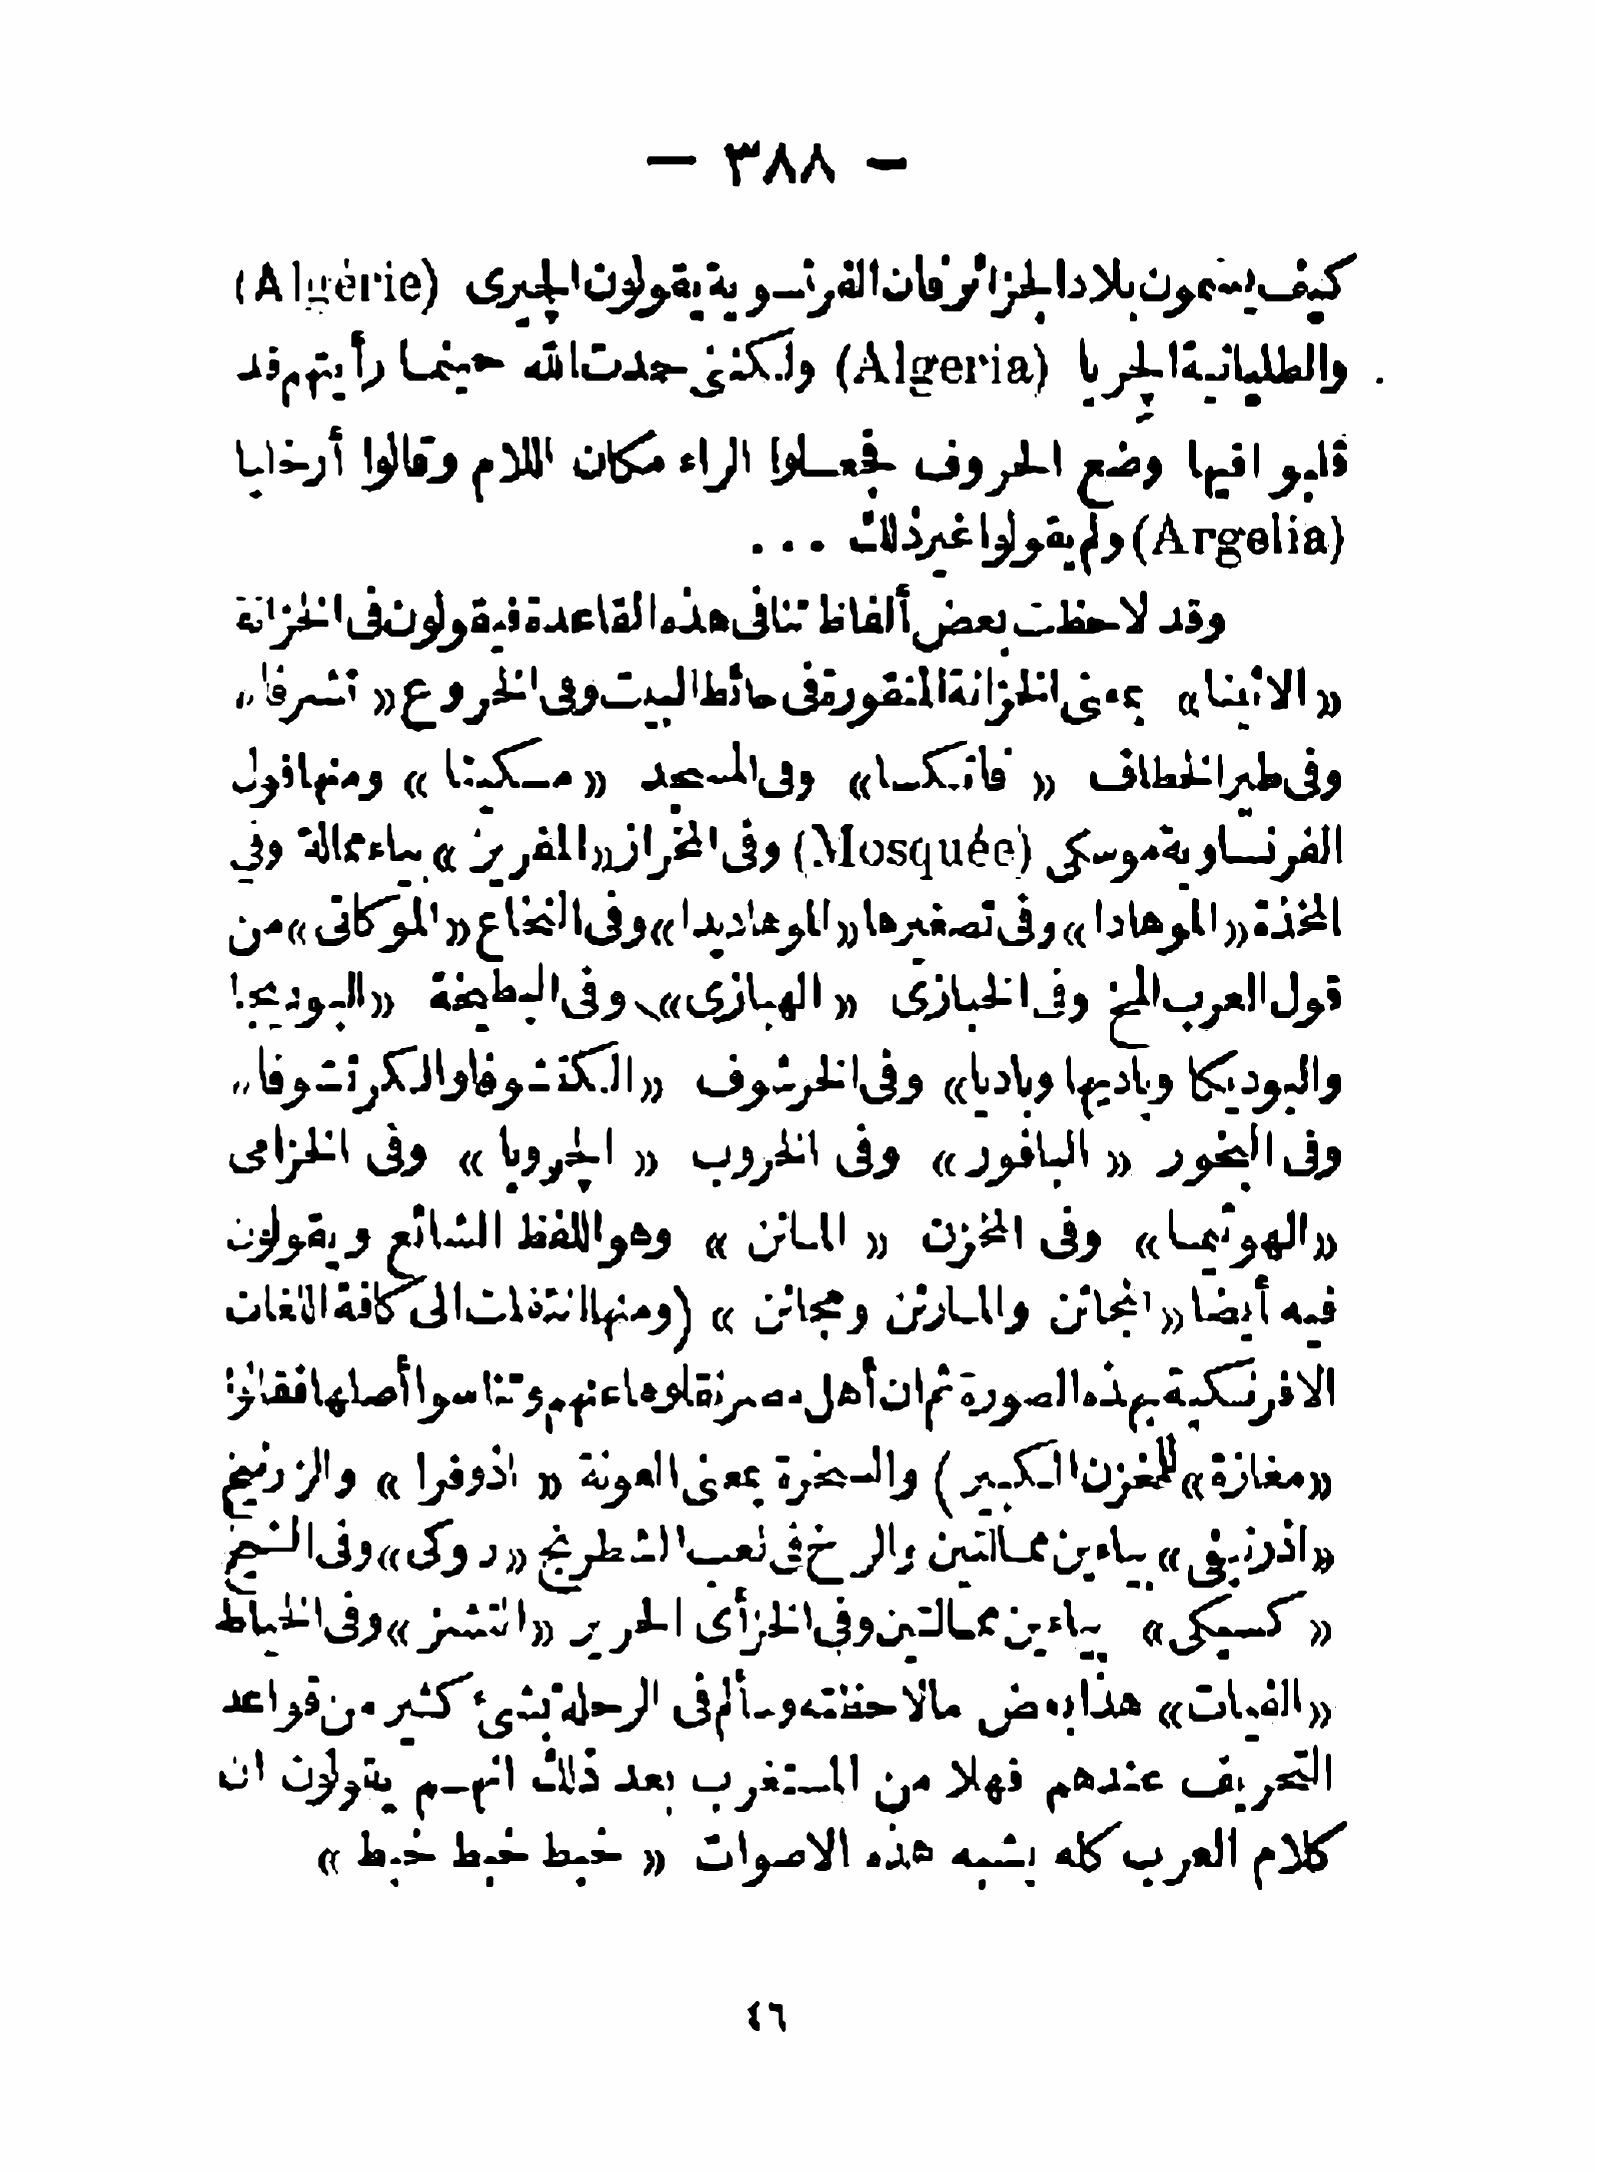 — ٣٨٨ —
كيف يسمون بلاد الجزائر فان الفرنسوية يقولون الچيرى (Algérie)
والطليانية الچريا (Algeria) ولكننى حمدت الله حينما رأيتهم قد
قلبوا فيها وضع الحروف فجعلوا الراء مكان اللام وقالوا أرخليا
(Argelia) ولم يقولوا غير ذلك ...
وقد لاحظت بعض ألفاظ تنافى هذه القاعدة فيقولون فى الخزانة
« الاثينا » بمعنى الخزانة المنقورة فى حائط البيت وفى الخروع « ثشرفا »
وفى طير الخطاف « فاتكسا » وفى المسجد « مسكيتا » ومنها قول
الفرنساوية موسكى (Mosquée) وفى المخراز « المفريز » بياء ممالة وفى
المخذة « الموهادا » وفى تصغيرها « الموهاديدا » وفى النخاع « الموكاتى » من
قول العرب المخ وفى الخبازى « الهبازى » وفى البطيخة « البوديجا
والبوديكا وباديها وباديا » وفى الخرشوف « الكنشوفا والكرتشوفا »
وفى البخور « البافور » وفى الخروب « الچروبا » وفى الخزامى
« الهوثيما » وفى المخزن « المائن » وهو اللفظ الشائع ويقولون
فيه أيضا « المجاثن والمارثن ومجاثن » (ومنها انتقلت الى كافة اللغات
الافرنكية بهذه الصورة ثم ان أهل مصر نقلوها عنهم وتناسوا أصلها فقالوا
« مغازة » للمخزن الكبير) والسخرة بمعنى العونة « اذوفرا » والزرنيخ
« اذرنيفى » بياءين ممالتين والرخ فى لعب الشطرنج « روكى » وفى الشيخ
« كسيكى » بياءين ممالتين وفى الخز أى الحرير « انتشيز » وفى الخياط
« الفيات » هذا بعض مالاحظته وسألم فى الرحلة بشئ كثير من قواعد
التحريف عندهم فهلا من المستغرب بعد ذلك انهم يقولون ان
كلام العرب كله يشبه هذه الاصوات « خبط خبط خبط »
٤٦